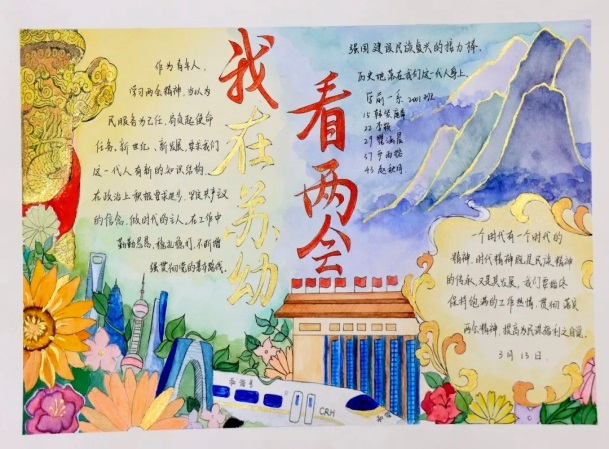 我在苏幼
看两会
作为青年人，
学习两会精神，当以为
民服务为己任，肩负起使命
任务。新世纪、新发展，要求我们
这一代人有新的知识结构。
在政治上积极要求进步，坚定共产主义
的信念，做时代的主人。在工作中
勤勤恳恳，稳扎稳打，不断增
强贯彻党的基本路线。
强国建设民族复兴的接力棒，
历史地落在我们这一代人身上。
一个时代有一个时代的
精神，时代精神既是民族精神
的传承，又是其发展。我们要始终
保持饱满的工作热情，贯彻落实
两会精神，提高为民谋福利之自觉。
3月13日
和谐号
CRH